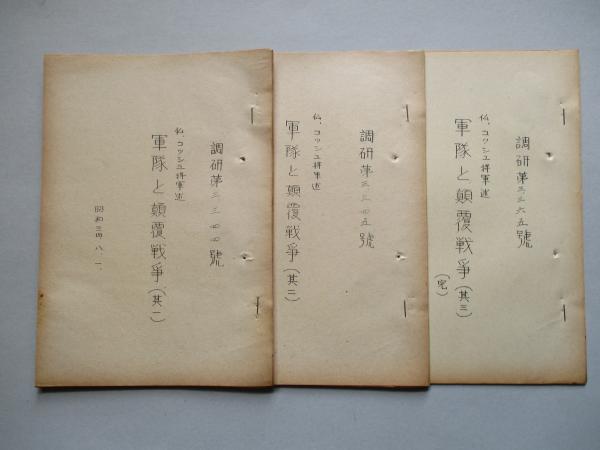 調研第三三四四號
仏、コツシユ将軍述
軍隊と顛覆戦爭(其一)
昭和三四、八、一、
調研第三三四五號
仏、コツシユ将軍述
軍隊と顛覆戦爭(其二)
調研第三三六五號
仏、コツシユ将軍述
軍隊と顛覆戦爭(其三)
(完)